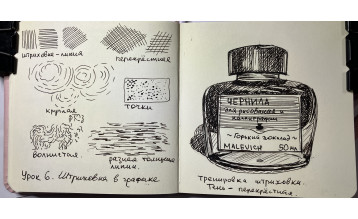 штриховка-линия
перекрёстная
круглая
точки
волнистая
разная толщина
линии.
Урок 6. Штриховка в графике
ЧЕРНИЛА
для рисования и
каллиграфии
~Горький шоколад~
MALEVICH 50 мл
Тренировка штриховка.
Тень - перекрёстная